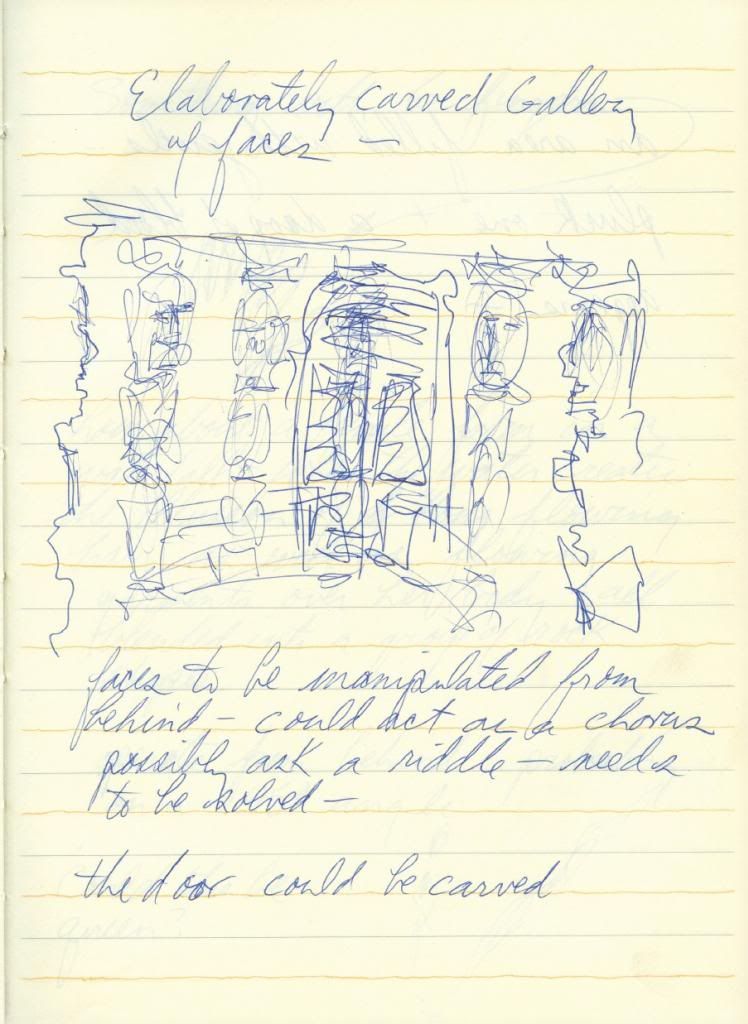 Elaborately carved Gallery
of faces —
faces to be manipulated from
behind – could act as a chorus
possibly ask a riddle – needs
to be solved –
the door could be carved